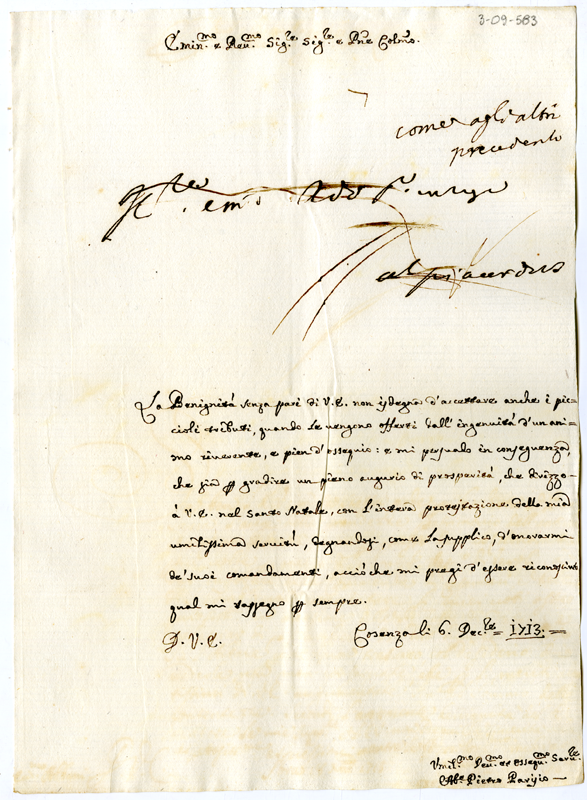 3-09-583
Emin.mo e Reu.mo Sig.re Sig.re e Pne Colmo.
come agli altri
precedenti
La Benignità senza pari di V.E. non isdegna d'accettare anche i pic=
cioli tributi, quando le vengono offerti dall'ingenuità d'un ani=
mo riuerente, e pien d'ossequio: e mi persuado in conseguenza,
che sia p gradire un pieno augurio di prosperità, che drizzo
à V.E. nel Santo Natale, con l'intera protestazione della mia
umilissima seruitù, degnandosi, come la supplico, d'onorarmi
de' suoi comandamenti, acciò che mi pregi d'essere riconosciuto
qual mi rassegno p sempre.
D. V. E.
Cosenza li 6. Dec.re 1713.
Vmil.mo Deu.mo et ossequ.mo Seru.re
Ab.e Pietro Parisio